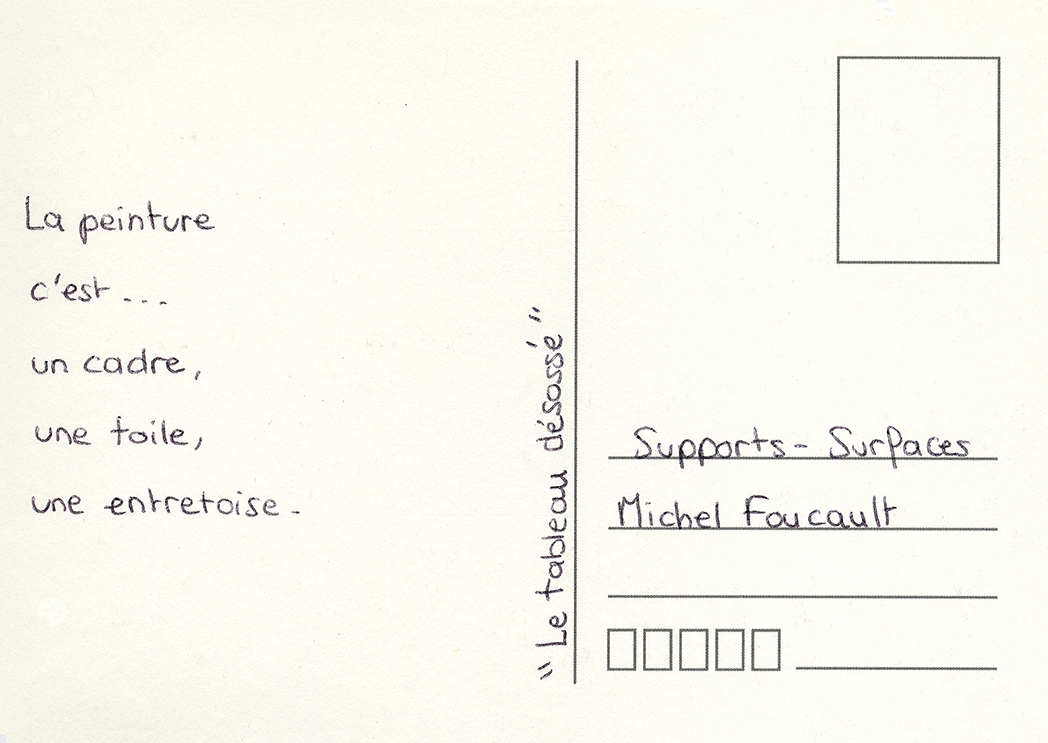 La peinture
c'est ...
un cadre,
une toile,
une entretoise.
"Le tableau désossé"
Supports - Surfaces
Michel Foucault